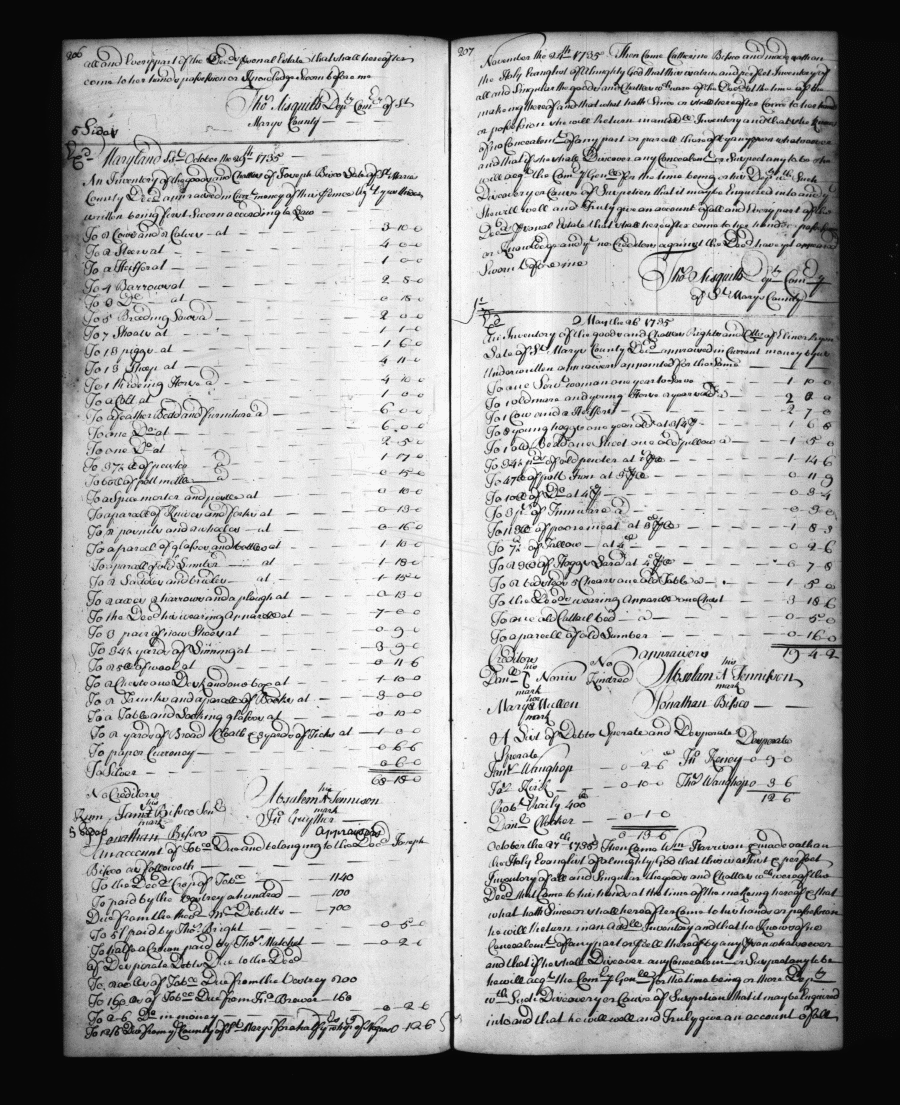 206
all and Every part of the Decd psonal Estate that shall hereafter
come to her hands possession or Knowledge Sworn before me
Thos Aisquith Depty Comry of St
Marys County
5 Sides
Maryland Ss October the 25th 1735
An Inventory of the goods and Chattles of Joseph Bisco Late of St Marys
County Decd appraised in Currt money of this Province by
written being first Sworn according to Law
To 2 Cows and 2 Calves at 3-10-0
To 2 Steers at 4-0-0
To a Heiffer at 1-0-0
To 4 Barrows at 2-8-0
To 3 Do at 0-18-0
To 5 Breeding Sows a 2-0-0
To 7 Shoats at 1-1-0
To 13 piggs at 1-6-0
To 13 Sheep at 4-11-0
To 1 Riding Horse a 4-10-0
To a Colt at 1-0-0
To a feather Bedd and furniture a 6-0-0
To one Do at 6-0-0
To one Do at 2-5-0
To 37 lb of pewter a 1-17-0
To 60 lb of pott mettle a 0-15-0
To a Spice morter and pestle at 0-10-0
To a parcell of Knives and forks at 0-13-0
To 2 and wheeles at 0-16-0
To a parcel of glasses and bottles at 1-10-0
To a parcell of old Lumber at 1-18-0
To 2 and at 1-15-0
To 2 axes 2 harrows and a plough at 0-13-0
To the Decd his wearing Apparell at 7-0-0
To 3 pair of new Shoes at 0-9-0
To 34½ yards of Lining at 3-9-0
To 23 lb of wool at 0-11-6
To a Chest one Desk and one box at 1-10-0
To 2 Trunks and a parcell of Books at 3-0-0
To a Table and Looking glass at 0-10-0
To 2 yards of Broad Cloath & 3 yards of at 1-0-0
To paper Currency 0-6-6
To Silver 0-6-0
68-18-0
No Creditors
Kinn James his mark Bisco Senr
Jonathan Bisco
Absalem his mark Tennison
Jno Guyther
Appraisors
5 Sides
An account of Tobco Due and belonging to the Decd Joseph
Bisco as followeth
To the Decd Crop of Tobco 1140
To paid by the Vestrey a hundred 100
Due from the Mr Debutts 700
To 5s paid by Thos Bright 0-5-0
To half a Crown paid by Thos Matchet 0-2-6
of Desperate Debts Due to the Decd
To 200 lbs of Tobco Due from the Vestrey 200
To 160 lbs of Tobco Due from Jno Brewer 160
To 2-6 Do in money 0-2-6
To 12/6 Due from ye County of St Marys for a half of 0 12 6
207
November the 24th 1735 Then Came Catherine Bisco and made oath on
the Holy Evanglist of Almighty God that this is a true and perfect Inventory of
all and Singular the goods and Chattles wch were of the Decd at the time of the
making thereof and that what hath Since or shall hereafter come to her hands
or possession she will Return in an addle Inventory and that she Knows
of no Concealment of any part or parcell thereof by any pson whatsoever
and that if she shall Discover any Concealmt or Suspect any to be she
will acqt the Comry Genll for the time being or his Depty with Such
Discovery or Cause of Suspetion that it may be Enquired into and
she will well and Truly give an account of all and Every part of the
Decd psonal Estate that shall hereafter come to her hands possession
or Knowledge and ye no Creditors against the Decd have yet appeared
Sworn before me
Thos Aisquith Depty Comry
of St Marys County
May the 26 1735
An Inventory of the goods and Chattles Rights and of Elinor
Late of St Marys County Decd appraised in Current money by us
Underwritten appraisers appointed for the Same
To one Serv: woman one year to Serve 1-10-0
To 1 old mare and young Horse 2 years old a 2 0 0
To 1 Cow and a Heiffer 2 7 0
To 8 young hoggs one year old at 1 6 8
To 1 old Bedd one Sheet one old pillow a 1 5 0
To 34½ pds of old pewter at 1 14 6
To 47 lb of pott Iron at 0 11 9
To 10 lb of Do at 4d 0-3-4
To 3 ps of Tinware a 0-3-0
To 113 lb of poore meat at 1 8 3
To 7½ of Tallow at 4d 0 2-6
To 23 lb of Hoggs Lard at 4d 0 7-8
To 2 5 Chears one old Table a 1 5 0
To the Decds wearing Apparell one Chest 3 18 6
To one old Cattail bed a 0-5-0
To a parcell of old Lumber 0-16-0
19-4-2
Creditors
Danl his mark Norris
Mary her mark Mullon
No Kindred
appraisers
Absolem his mark Tennisson
Jonathan Bisco
A List of Debts Sperate and Desperate
Sperate
Desperate
James Waughop 0-2-6
Jno Keney 0-9-0
Jas Keirk 0-10-0
Thos Waughop 0 3-6
12-6
Robt 400
Danl Clocker 0-1-0
0 13 6
October the 27th 1735 Then Came Wm Harrison & made oath on
the Holy Evanglist of almighty God that this is a True & perfect
Inventory of all and Singular the goods and Chattles wch were of the
Decd that Came to his hands at the time of the making hereof & that
what hath Since or shall hereafter Come to his hands or possession
he will Return in an Addle Inventory and that he Knows of no
Concealmt of any part or psell thereof by any pson whatsoever
and that if he shall Discover any Concealmt or Suspect any to be
he will acqt the Comry Genll for the time being or their Depty
wth Such Discovery or Cause of Suspetion that it may be Enquired
into and that he will well and Truly give an account of all